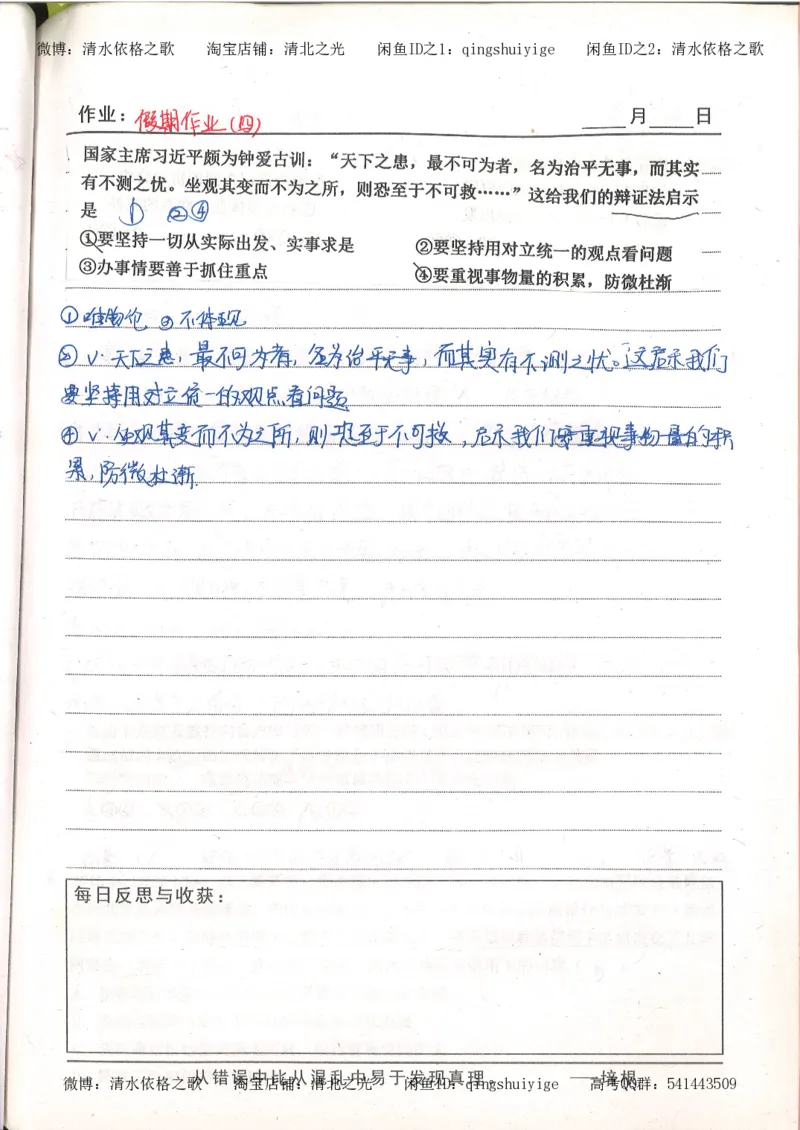 微博：清水依格之歌 淘宝店铺：清北之光 闲鱼ID之1：qingshuiyige 闲鱼ID之2：清水依格之歌
作业：假期作业(四) ____月____日
国家主席习近平颇为钟爱古训：“天下之患，最不可为者，名为治平无事，而其实
有不测之忧。坐观其变而不为之所，则恐至于不可救……”这给我们的辩证法启示
是 D ②④
①要坚持一切从实际出发、实事求是 ②要坚持用对立统一的观点看问题
③办事情要善于抓住重点 ④要重视事物量的积累，防微杜渐
①唯物论 ③不体现
②√.天下之患，最不可为者，名为治平无事，而其实有不测之忧。这启示我们
要坚持用对立统一的观点看问题
④√.坐观其变而不为之所，则恐至于不可救，启示我们要重视事物量的积
累，防微杜渐.
每日反思与收获：
从错误中比从混乱中易于发现真理。 ——培根
微博：清水依格之歌 淘宝店铺：清北之光 闲鱼ID：qingshuiyige 高考QQ群：541443509